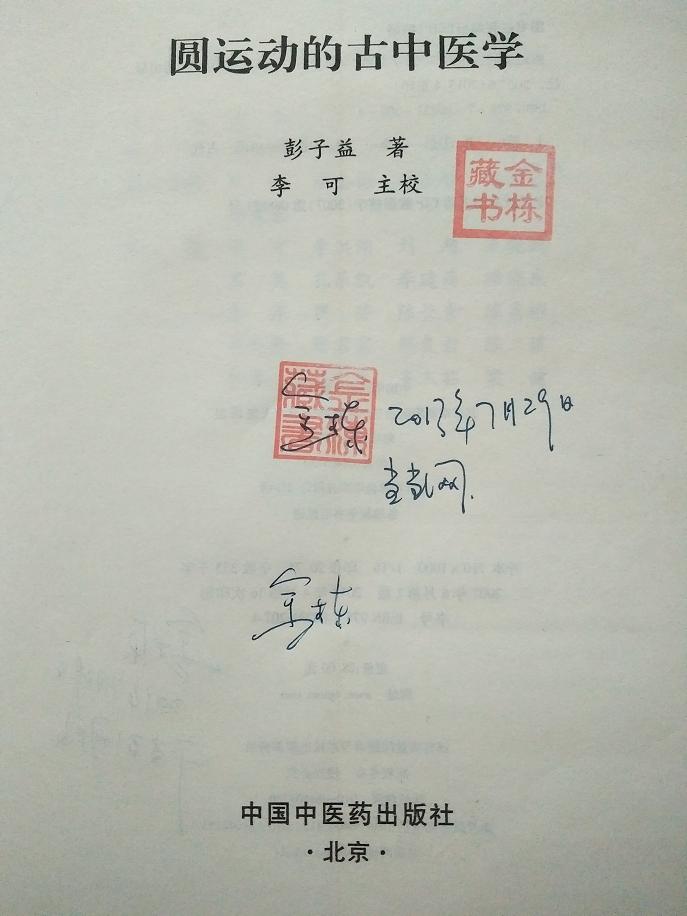 圆运动的古中医学
彭子益 著
李 可 主校
金栋
藏书
金栋
藏书
金栋
2013年7月29日
当当网.
金栋
中国中医药出版社
·北京·